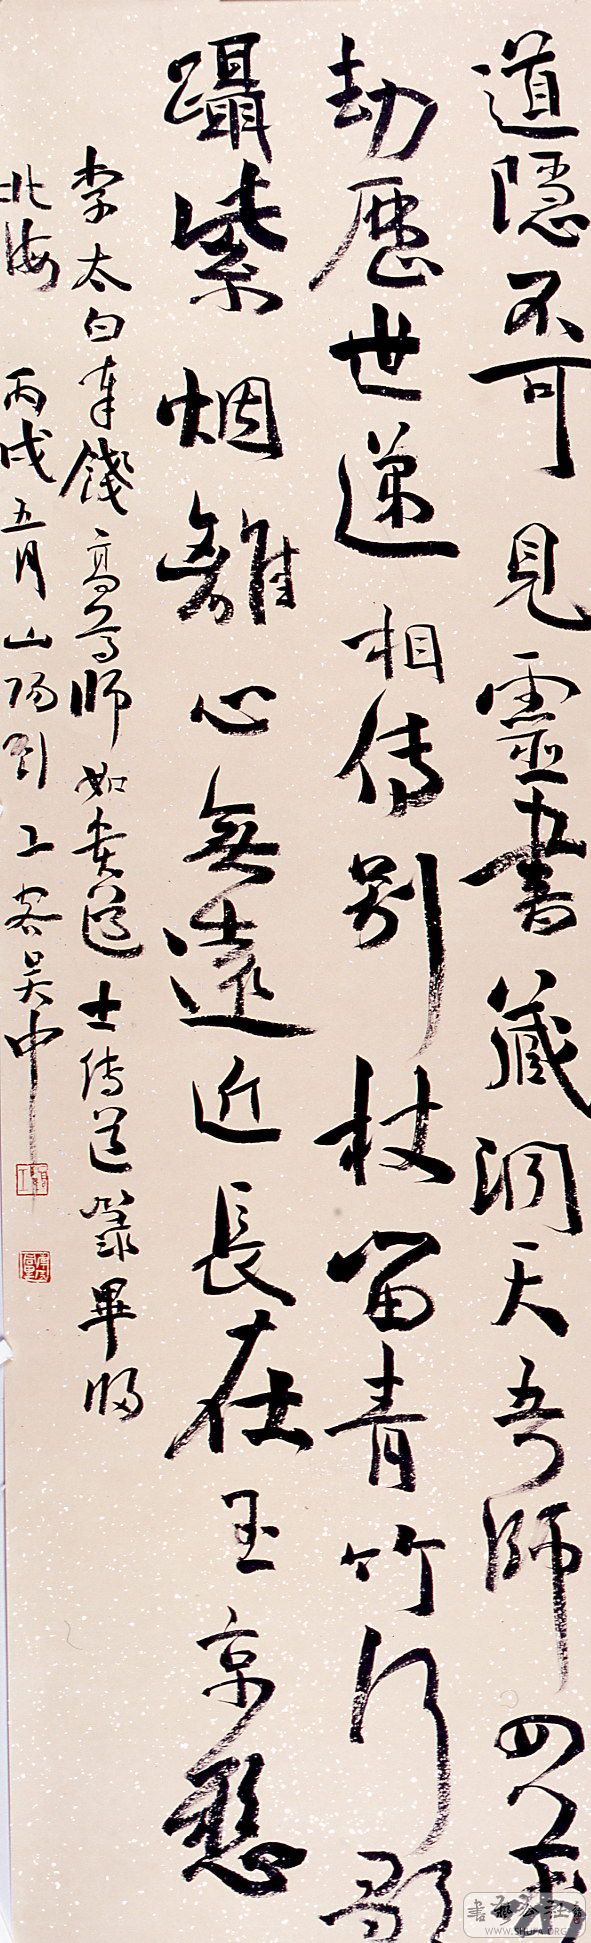 道隱不可見靈書藏洞天吾師四萬
劫歷世遞相传別杖留青竹行歌
躡紫烟離心無遠近長在玉京懸
李太白奉餞高尊師如貴道士传道籙畢歸
北海 丙戌五月山陽劉工客吴中
書藝公社
WWW.SHUFA.ORG